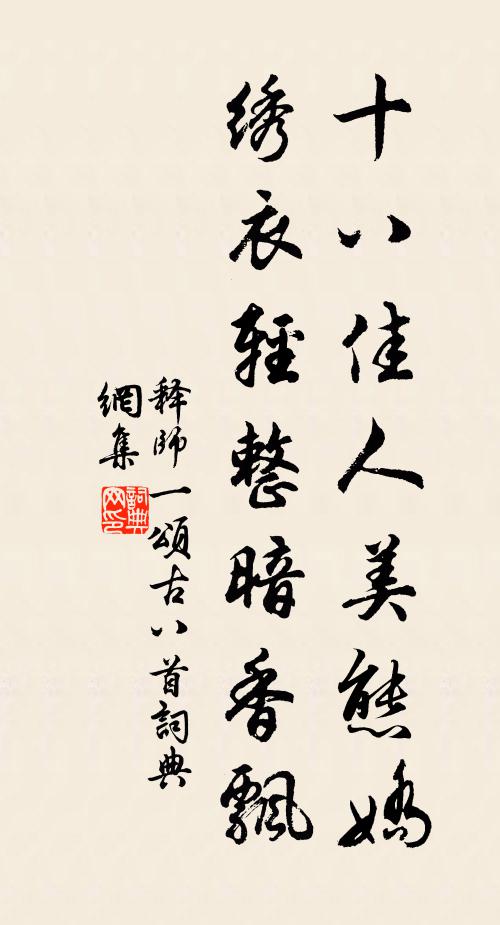 十八佳人美態嬌
綉衣輕整暗香飄
释師一頌古八首詞典
網集
詞典網印